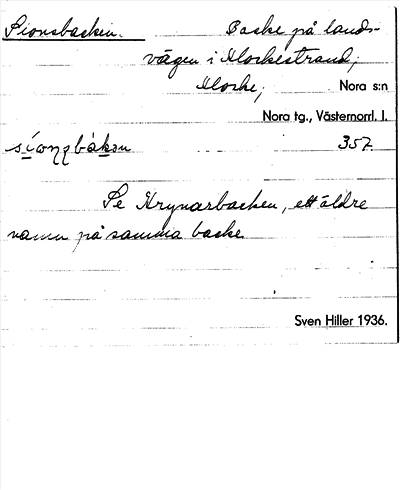 Sionsbacken. Backe på lands-
vägen i Klockestrand,
Klocke, Nora s:n
Nora tg., Västernorrl. l.
357
Se Krynarbacken, ett äldre
namn på samma backe
Sven Hiller 1936.